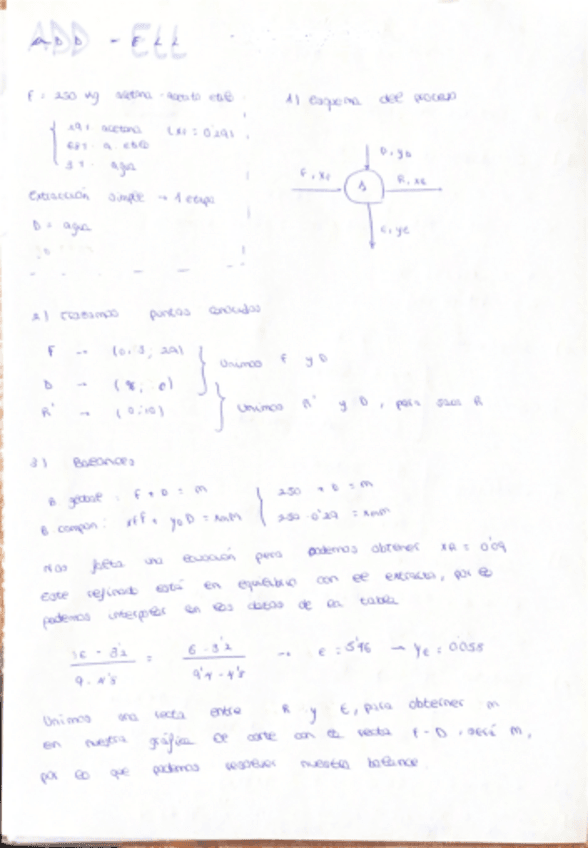 ADD - ELL
F = 250 kg acetona - acetato etilo
29% acetona (xF = 0'29)
68% a. etilo
3% agua
Extracción simple → 1 etapa
D = agua
1) Esquema del proceso
D, yD
F, xF
1
R, xR
E, yE
2) Trazamos puntos conocidos
F → (0, 3; 29)
D → ( ; 0)
R' → (0; 10)
Unimos F y D
Unimos R' y D, para sacar R
3) Balances
B global: F + D = M
B compon: xF F + yD D = xM M
250 + D = M
250 · 0'29 = xM M
Nos falta una ecuación pero podemos obtener xR = 0'09
Este refinado está en equilibrio con el extracto, por lo
podemos interpolar en los datos de la tabla
6 - 3'2
9'4 - 4'8
→ E = 5'76 → yE = 0'058
Unimos una recta entre R y E, para obtener M
en nuestra gráfica. El corte con la recta F - D, será M,
por lo que podemos resolver nuestro balance.